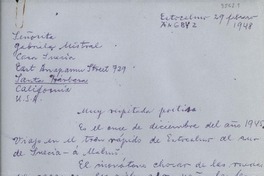 Estocolmo 29 febrero
1948
Señorita
Gabriela Mistral
Casa Suecia
East Anapamu Street 729
Santa Barbara
California
U.S.A.
Muy respetada poetisa
Es el once de diciembre del año 1945.
Viajo en el tren rápido de Estocolmo al sur
de Suecia - á Malmö
El monótono chocar de las ruedas